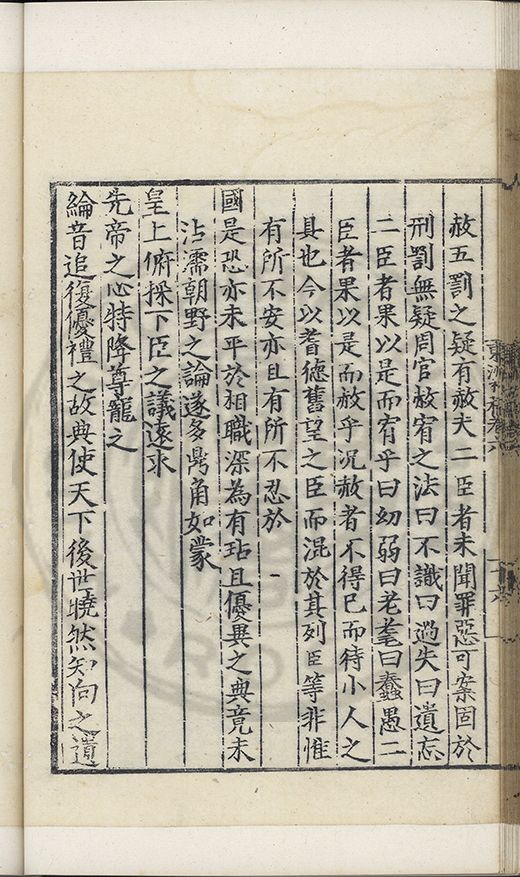 赦五罰之疑有赦夫二臣者未聞罪惡可案固於
刑罰無疑周官赦宥之法曰不識曰過失曰遺忘
二臣者果以是而宥乎曰幼弱曰老耄曰蠢愚二
臣者果以是而赦乎況赦者不得已而待小人之
具也今以耆德舊望之臣而混於其列臣等非惟
有所不安亦且有所不忍於
國是恐亦未平於相職深為有玷且優異之典竟未
沾濡朝野之論遂多鼎角如蒙
皇上俯採下臣之議遠求
先帝之心特降尊寵之
綸音追復優禮之故典使天下後世曉然知向之遺